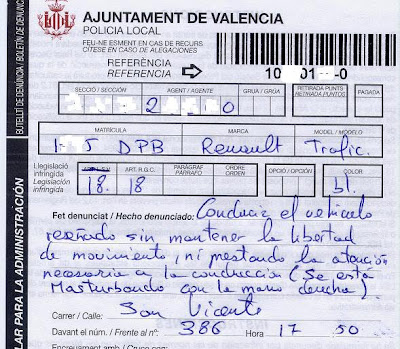 AJUNTAMENT DE VALENCIA
POLICIA LOCAL
FEU-NE ESMENT EN CAS DE RECURS
CÍTESE EN CASO DE ALEGACIONES
REFERÈNCIA
REFERENCIA
10 01 -0
SECCIÓ / SECCIÓN AGENT / AGENTE GRUA / GRÚA RETIRADA PUNTS RETIRADA PUNTOS PAGADA
2 0
MATRÍCULA MARCA MODEL / MODELO
5 DPB Renault Trafic.
Legislació infringida Legislación infringida ART. R.G.C. PARÀGRAF PÁRRAFO ORDRE ORDEN OPCIÓ / OPCIÓN COLOR
18. 18 bl.
Fet denunciat / Hecho denunciado: Conducir el vehículo
reseñado sin mantener la libertad
de movimiento, ni prestando la atención
necesaria a la conducción (Se está
Masturbando con la mano derecha).
Carrer / Calle: San Vicente
Davant el núm. / Frente al nº: 386 Hora 17 50
Encreuament amb / Cruce con:
BUTLLETÍ DE DENÚNCIA / BOLETÍN DE DENUNCIA
LAR PARA LA ADMINISTRACIÓN